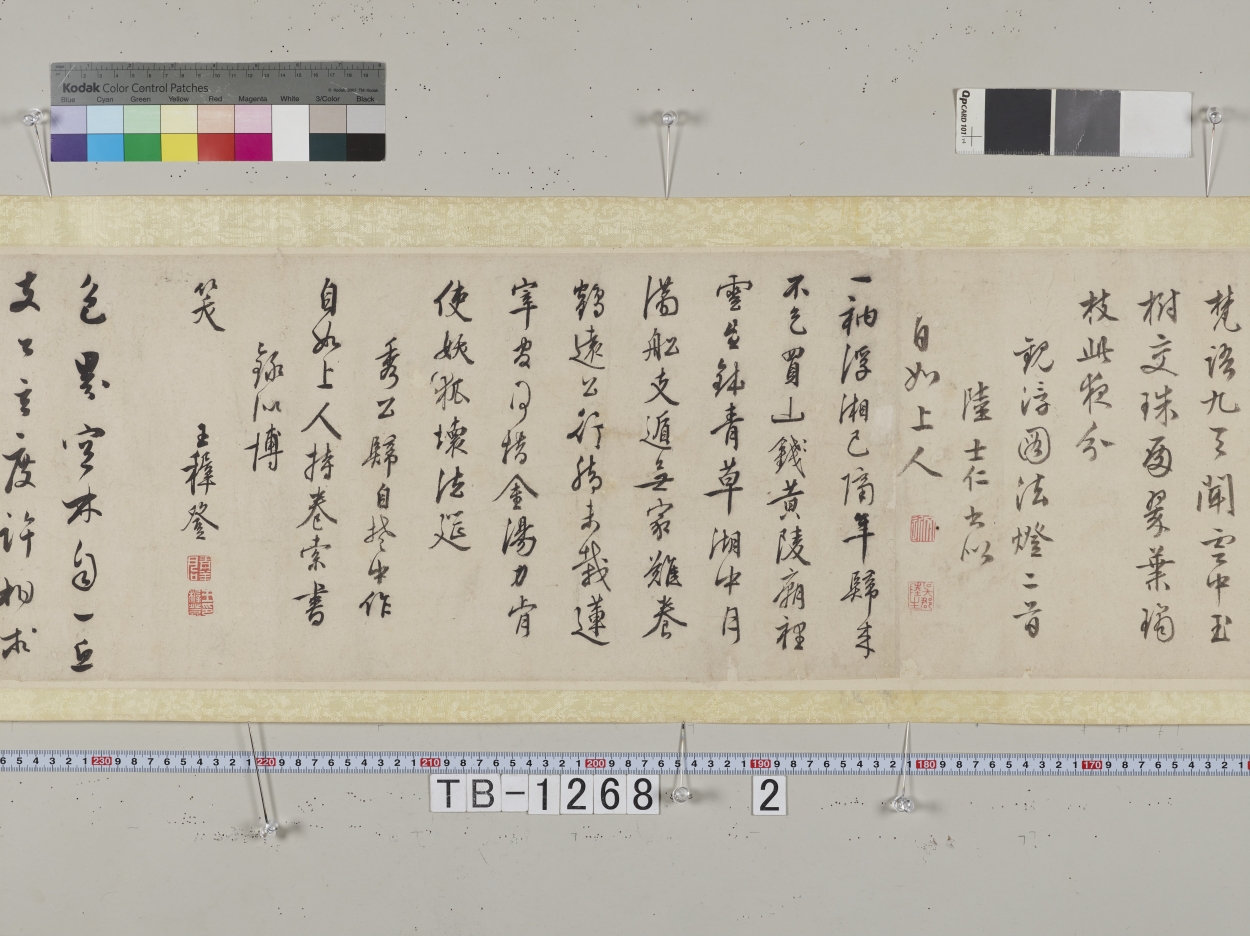 梵語九天聞雲中玉
樹交珠網翠葉瑤
枝此夜分
觀浮圖法燈二首
陸士仁書似
自如上人
一衲浮湘已隔年歸來
不乞買山錢黃陵廟裡
雲生鉢青草湖中月
滿船支遁無家難養
鶴遠公行腳未栽蓮
宰官何惜金湯力肯
使妖狐壞法筵
秀公歸自楚中作
自如上人持卷索書
錄似博
笑
王穉登
色界空林自一丘
支公高度許相求
Kodak Color Control Patches
Blue Cyan Green Yellow Red Magenta White 3/Color Black
QpCARD 101
TB-1268 2